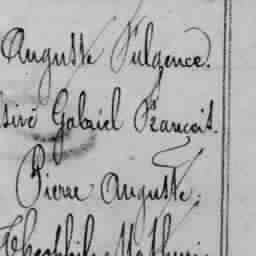 Auguste Fulgence.
siré Gabriel François.
Pierre Auguste.
Théophile Mathuri